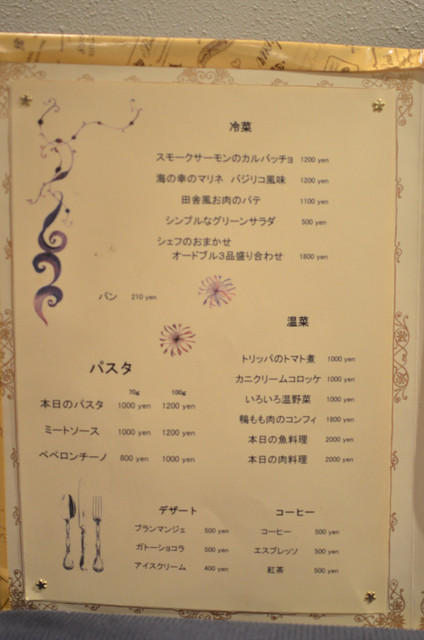 冷菜
スモークサーモンのカルパッチョ 1200 yen
海の幸のマリネ バジリコ風味 1200 yen
田舎風お肉のパテ 1100 yen
シンプルなグリーンサラダ 500 yen
シェフのおまかせ
オードブル3品盛り合わせ 1800 yen
パン 210 yen
温菜
トリッパのトマト煮 1000 yen
カニクリームコロッケ 1000 yen
いろいろ温野菜 1000 yen
鴨もも肉のコンフィ 1800 yen
本日の魚料理 2000 yen
本日の肉料理 2000 yen
パスタ
70g 100g
本日のパスタ 1000 yen 1200 yen
ミートソース 1000 yen 1200 yen
ペペロンチーノ 800 yen 1000 yen
デザート
ブランマンジェ 500 yen
ガトーショコラ 500 yen
アイスクリーム 400 yen
コーヒー
コーヒー 500 yen
エスプレッソ 500 yen
紅茶 500 yen